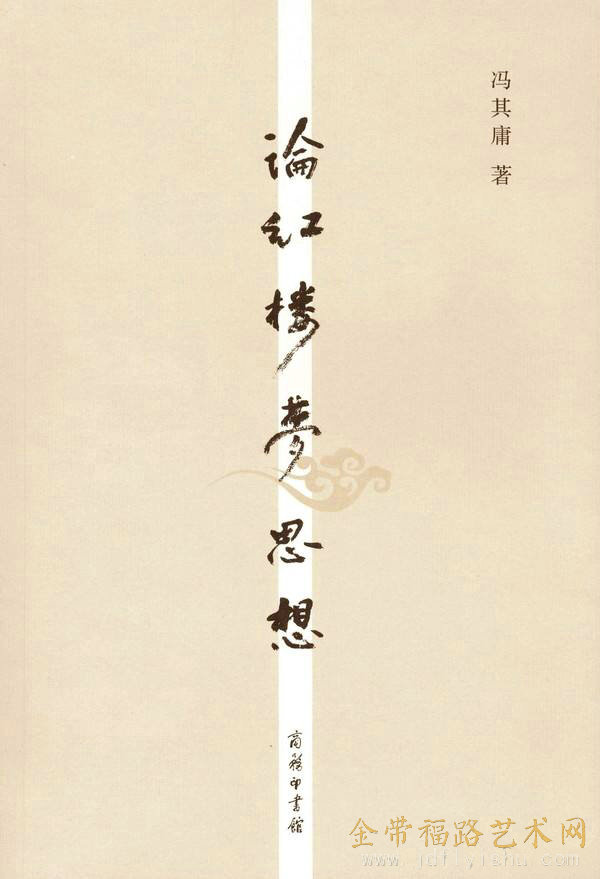 冯其庸 著
論红楼夢思想
商務印書館
金带福路艺术网
www.jdflyishu.com